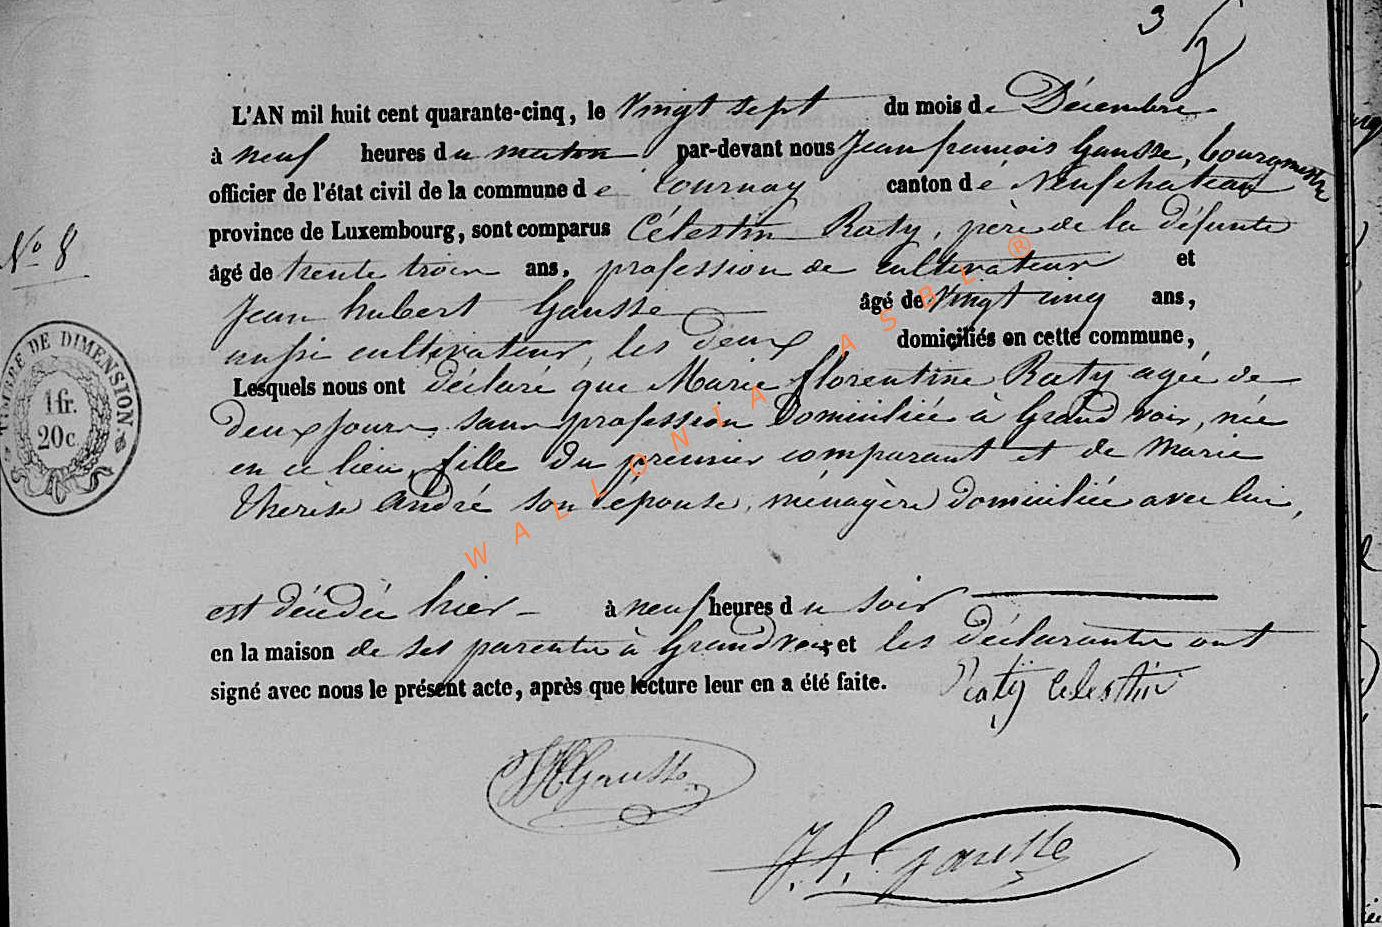 3
L'AN mil huit cent quarante-cinq, le Vingt sept du mois de Décembre
à neuf heures du matin par-devant nous Jean françois Gausse, bourgmestre
officier de l'état civil de la commune de Tournay canton de Neufchâteau
province de Luxembourg, sont comparus Célestin Raty, père de la défunte
No 8
âgé de trente trois ans, profession de cultivateur et
Jean hubert Gausse âgé de Vingt cinq ans,
aussi cultivateur, les deux domiciliés en cette commune,
Lesquels nous ont déclaré que Marie florentine Raty agée de
deux jours, sans profession Domiciliée à Grandvoir, née
en ce lieu, fille du premier comparant et de Marie
Thérèse André son épouse, ménagère domiciliée avec lui,
TIMBRE DE DIMENSION
1 fr.
20 c.
est décédée hier à neuf heures du soir
en la maison de ses parents à Grandvoir et les déclarants ont
signé avec nous le présent acte, après que lecture leur en a été faite.
Raty Celestin
JHGausse
J. f. gausse
WALLONIA ASBL ®